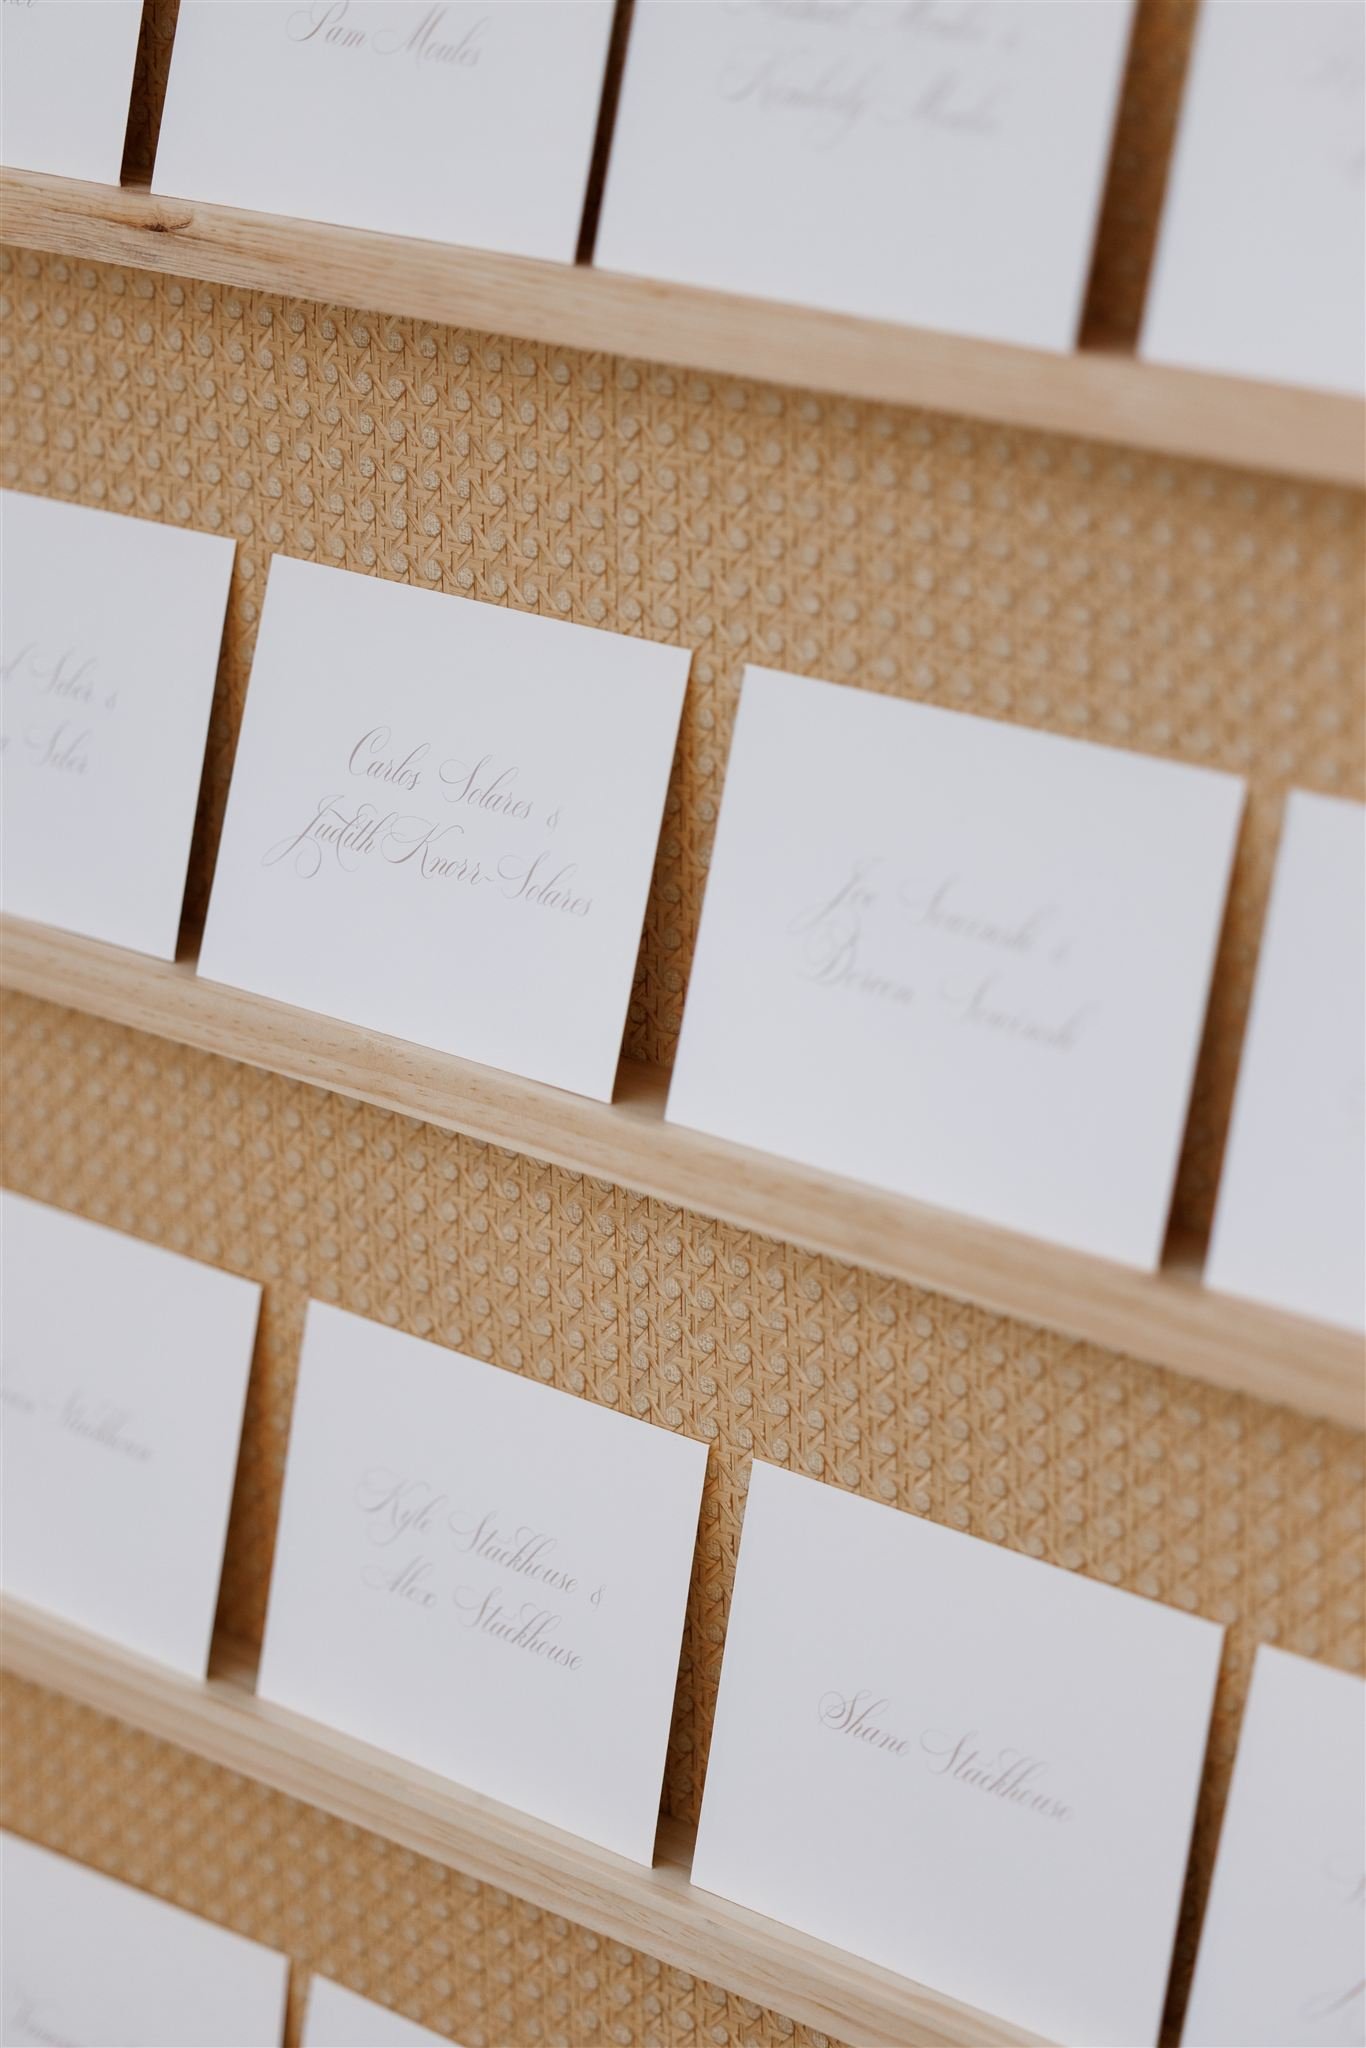 Pam Moules
Kimberly Moules
Seber &
Seber
Carlos Solares &
Judith Knorr-Solares
Joe Sowinski &
Doreen Sowinski
Stackhouse
Kyle Stackhouse &
Alex Stackhouse
Shane Stackhouse